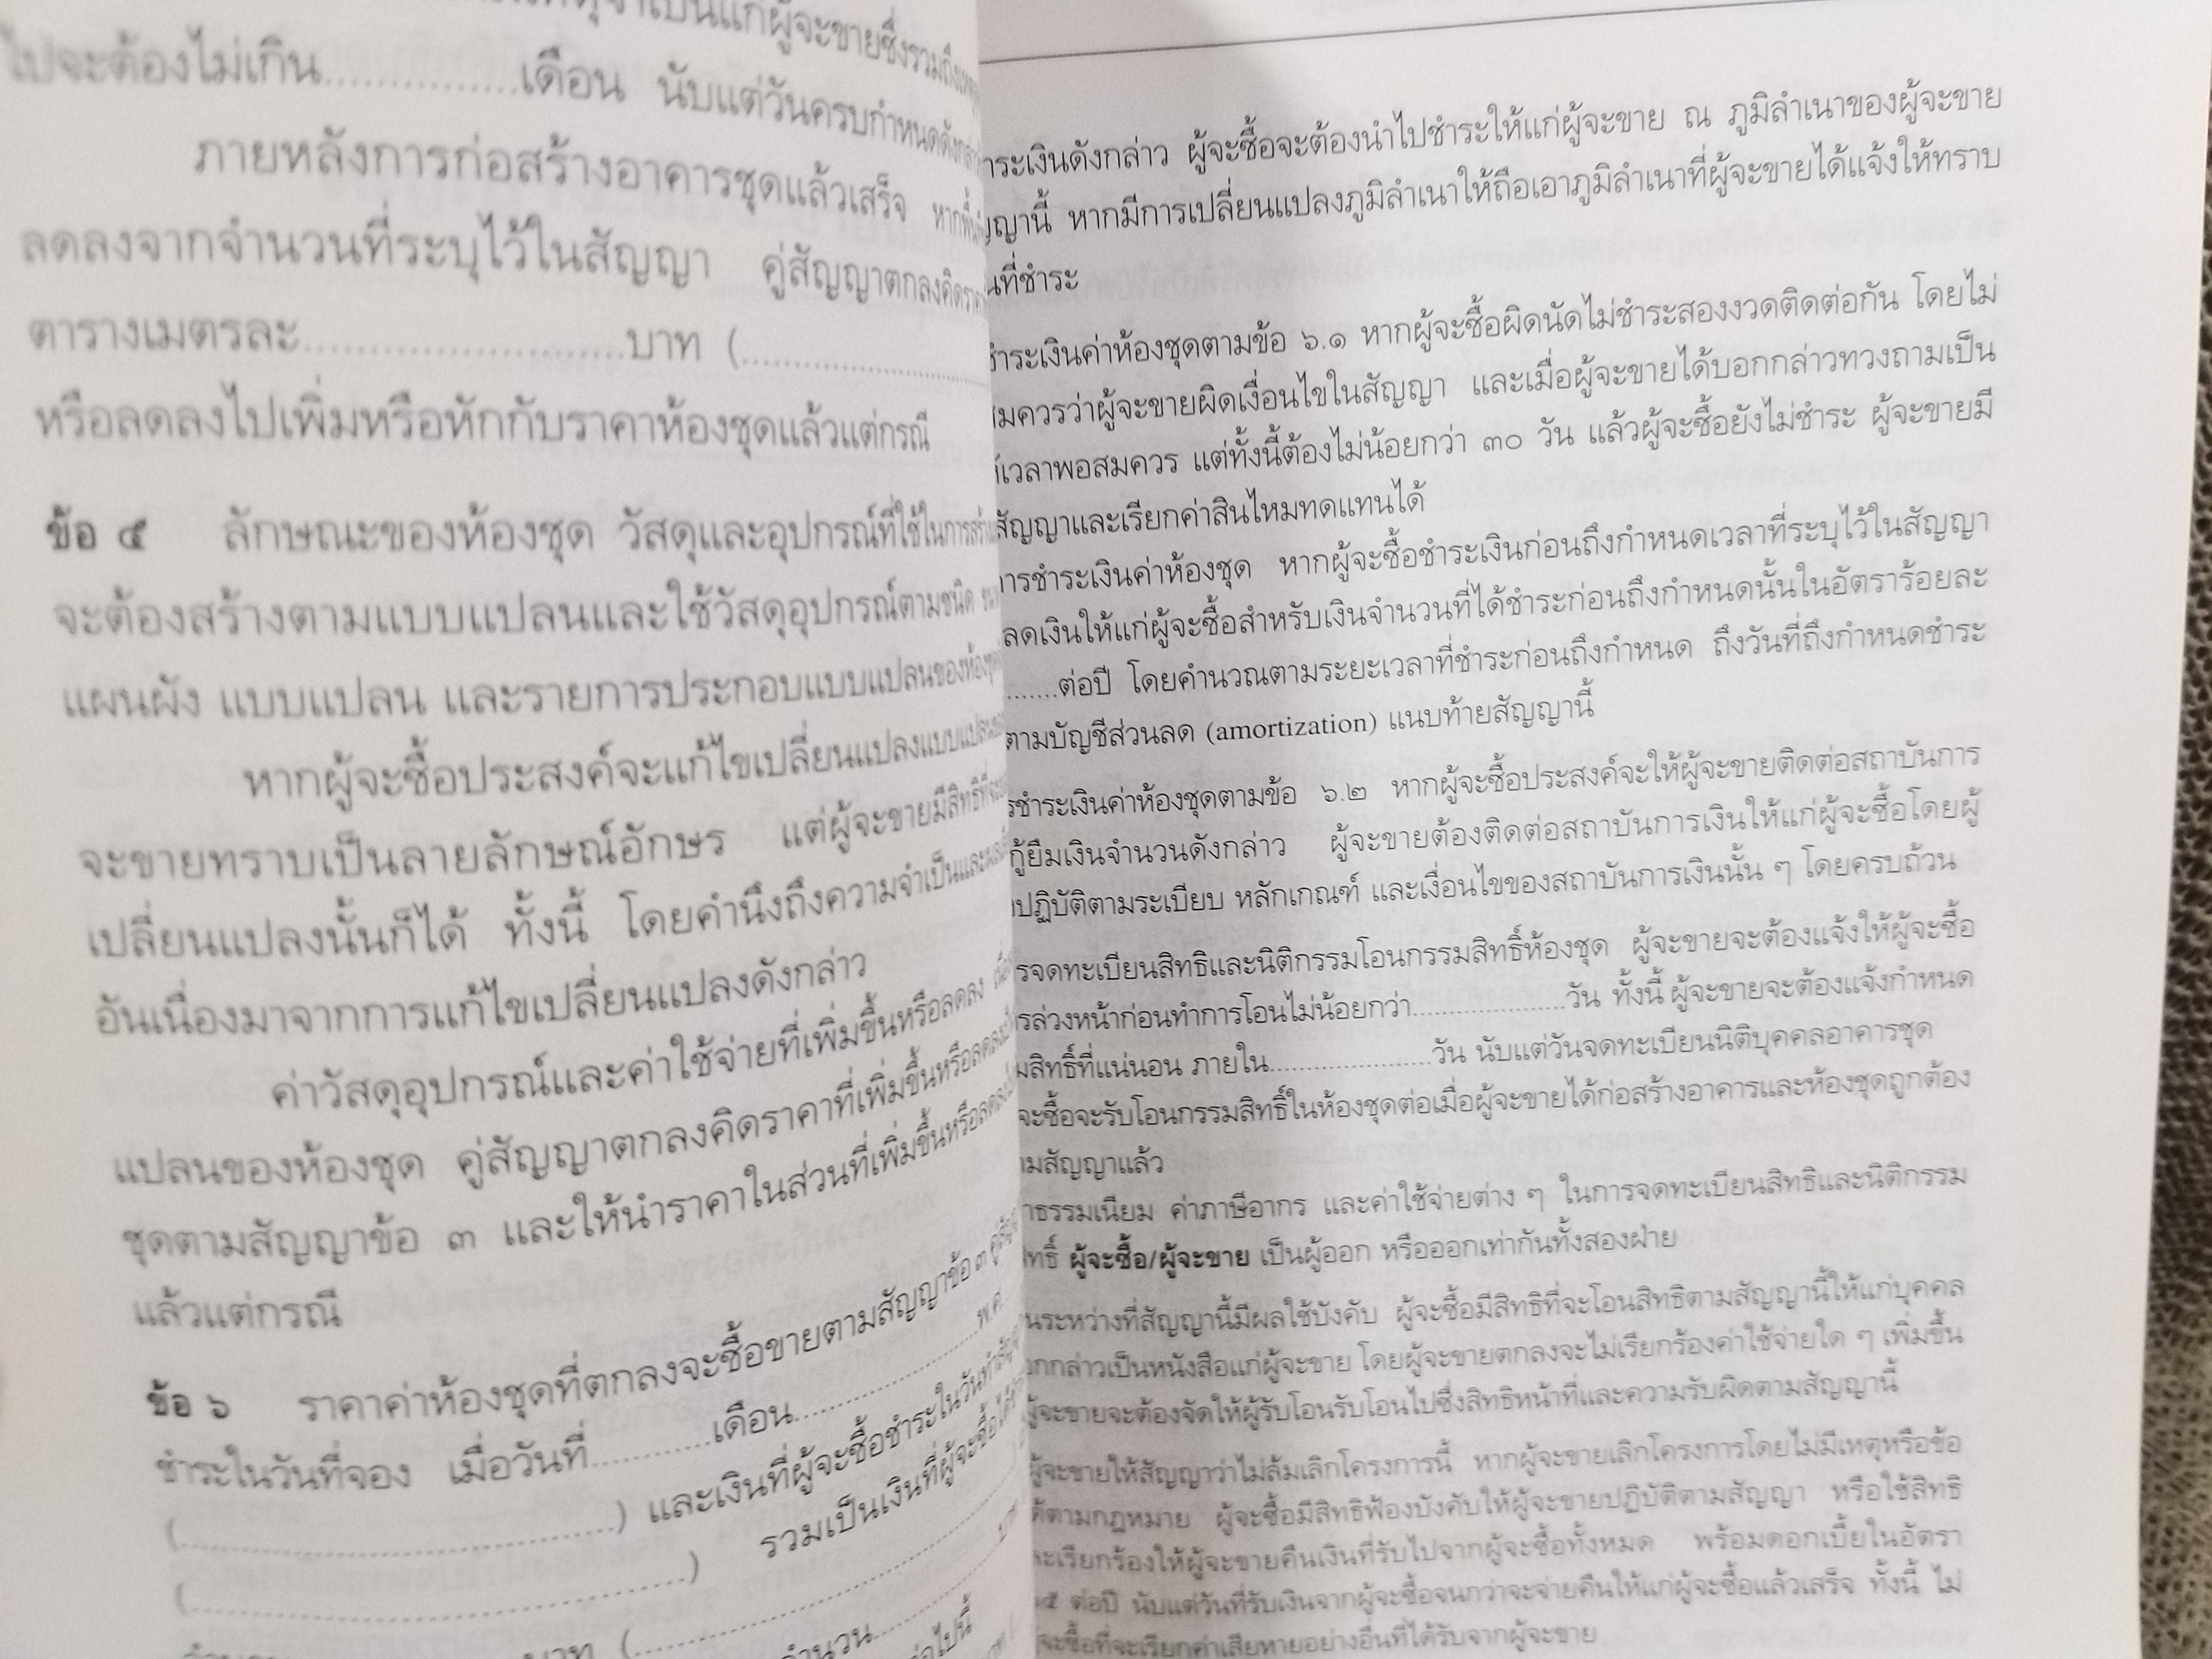 ไปจะต้องไม่เกิน...............เดือน นับแต่วันครบกำหนดดัง
ภายหลังการก่อสร้างอาคารชุดแล้วเสร็จ
ลดลงจากจำนวนที่ระบุไว้ในสัญญา คู่สัญญาตกลงคิด
ตารางเมตรละ..........................บาท (......................
หรือลดลงไปเพิ่มหรือหักกับราคาห้องชุดแล้วแต่กรณี
ข้อ ๕ ลักษณะของห้องชุด วัสดุและอุปกรณ์ที่ใช้ในการ
จะต้องสร้างตามแบบแปลนและใช้วัสดุอุปกรณ์ตามชนิด
แผนผัง แบบแปลน และรายการประกอบแบบแปลนของ
หากผู้จะซื้อประสงค์จะแก้ไขเปลี่ยนแปลงแบบ
จะขายทราบเป็นลายลักษณ์อักษร แต่ผู้จะขายมีสิทธิที่จะ
เปลี่ยนแปลงนั้นก็ได้ ทั้งนี้ โดยคำนึงถึงความจำเป็นและ
อันเนื่องมาจากการแก้ไขเปลี่ยนแปลงดังกล่าว
ค่าวัสดุอุปกรณ์และค่าใช้จ่ายที่เพิ่มขึ้นหรือลดลง
แปลนของห้องชุด คู่สัญญาตกลงคิดราคาที่เพิ่มขึ้นหรือลดลง
ชุดตามสัญญาข้อ ๓ และให้นำราคาในส่วนที่เพิ่มขึ้นหรือลดลง
แล้วแต่กรณี
ข้อ ๖ ราคาค่าห้องชุดที่ตกลงจะซื้อขายตามสัญญาข้อ ๓
ชำระในวันที่จอง เมื่อวันที่..........เดือน....................พ.ศ.
(....................................) และเงินที่ผู้จะซื้อชำระในวันทำ
(........................................) รวมเป็นเงินที่ผู้จะซื้อ
บาท (
าระเงินดังกล่าว ผู้จะซื้อจะต้องนำไปชำระให้แก่ผู้จะขาย ณ ภูมิลำเนาของผู้จะขาย
ญญานี้ หากมีการเปลี่ยนแปลงภูมิลำเนาให้ถือเอาภูมิลำเนาที่ผู้จะขายได้แจ้งให้ทราบ
นที่ชำระ
ชำระเงินค่าห้องชุดตามข้อ ๖.๑ หากผู้จะซื้อผิดนัดไม่ชำระสองงวดติดต่อกัน โดยไม่
มควรว่าผู้จะขายผิดเงื่อนไขในสัญญา และเมื่อผู้จะขายได้บอกกล่าวทวงถามเป็น
เวลาพอสมควร แต่ทั้งนี้ต้องไม่น้อยกว่า ๓๐ วัน แล้วผู้จะซื้อยังไม่ชำระ ผู้จะขายมี
สัญญาและเรียกค่าสินไหมทดแทนได้
การชำระเงินค่าห้องชุด หากผู้จะซื้อชำระเงินก่อนถึงกำหนดเวลาที่ระบุไว้ในสัญญา
ลดเงินให้แก่ผู้จะซื้อสำหรับเงินจำนวนที่ได้ชำระก่อนถึงกำหนดนั้นในอัตราร้อยละ
.......ต่อปี โดยคำนวณตามระยะเวลาที่ชำระก่อนถึงกำหนด ถึงวันที่ถึงกำหนดชำระ
ตามบัญชีส่วนลด (amortization) แนบท้ายสัญญานี้
รชำระเงินค่าห้องชุดตามข้อ ๖.๒ หากผู้จะซื้อประสงค์จะให้ผู้จะขายติดต่อสถาบันการ
กู้ยืมเงินจำนวนดังกล่าว ผู้จะขายต้องติดต่อสถาบันการเงินให้แก่ผู้จะซื้อโดยผู้
ปฏิบัติตามระเบียบ หลักเกณฑ์ และเงื่อนไขของสถาบันการเงินนั้น ๆ โดยครบถ้วน
รจดทะเบียนสิทธิและนิติกรรมโอนกรรมสิทธิ์ห้องชุด ผู้จะขายจะต้องแจ้งให้ผู้จะซื้อ
รล่วงหน้าก่อนทำการโอนไม่น้อยกว่า.....................วัน ทั้งนี้ ผู้จะขายจะต้องแจ้งกำหนด
มสิทธิ์ที่แน่นอน ภายใน.......................วัน นับแต่วันจดทะเบียนนิติบุคคลอาคารชุด
จะซื้อจะรับโอนกรรมสิทธิ์ในห้องชุดต่อเมื่อผู้จะขายได้ก่อสร้างอาคารและห้องชุดถูกต้อง
ามสัญญาแล้ว
าธรรมเนียม ค่าภาษีอากร และค่าใช้จ่ายต่าง ๆ ในการจดทะเบียนสิทธิและนิติกรรม
ทธิ์ ผู้จะซื้อ/ผู้จะขาย เป็นผู้ออก หรือออกเท่ากันทั้งสองฝ่าย
นระหว่างที่สัญญานี้มีผลใช้บังคับ ผู้จะซื้อมีสิทธิที่จะโอนสิทธิตามสัญญานี้ให้แก่บุคคล
อกกล่าวเป็นหนังสือแก่ผู้จะขาย โดยผู้จะขายตกลงจะไม่เรียกร้องค่าใช้จ่ายใด ๆ เพิ่มขึ้น
ผู้จะขายจะต้องจัดให้ผู้รับโอนรับโอนไปซึ่งสิทธิหน้าที่และความรับผิดตามสัญญานี้
ผู้จะขายให้สัญญาว่าไม่ล้มเลิกโครงการนี้ หากผู้จะขายเลิกโครงการโดยไม่มีเหตุหรือข้อ
ตามกฎหมาย ผู้จะซื้อมีสิทธิฟ้องบังคับให้ผู้จะขายปฏิบัติตามสัญญา หรือใช้สิทธิ
ละเรียกร้องให้ผู้จะขายคืนเงินที่รับไปจากผู้จะซื้อทั้งหมด พร้อมดอกเบี้ยในอัตรา
๕ ต่อปี นับแต่วันที่รับเงินจากผู้จะซื้อจนกว่าจะจ่ายคืนให้แก่ผู้จะซื้อแล้วเสร็จ ทั้งนี้ ไม่
จะซื้อที่จะเรียกค่าเสียหายอย่างอื่นที่ได้รับจากผู้จะขาย